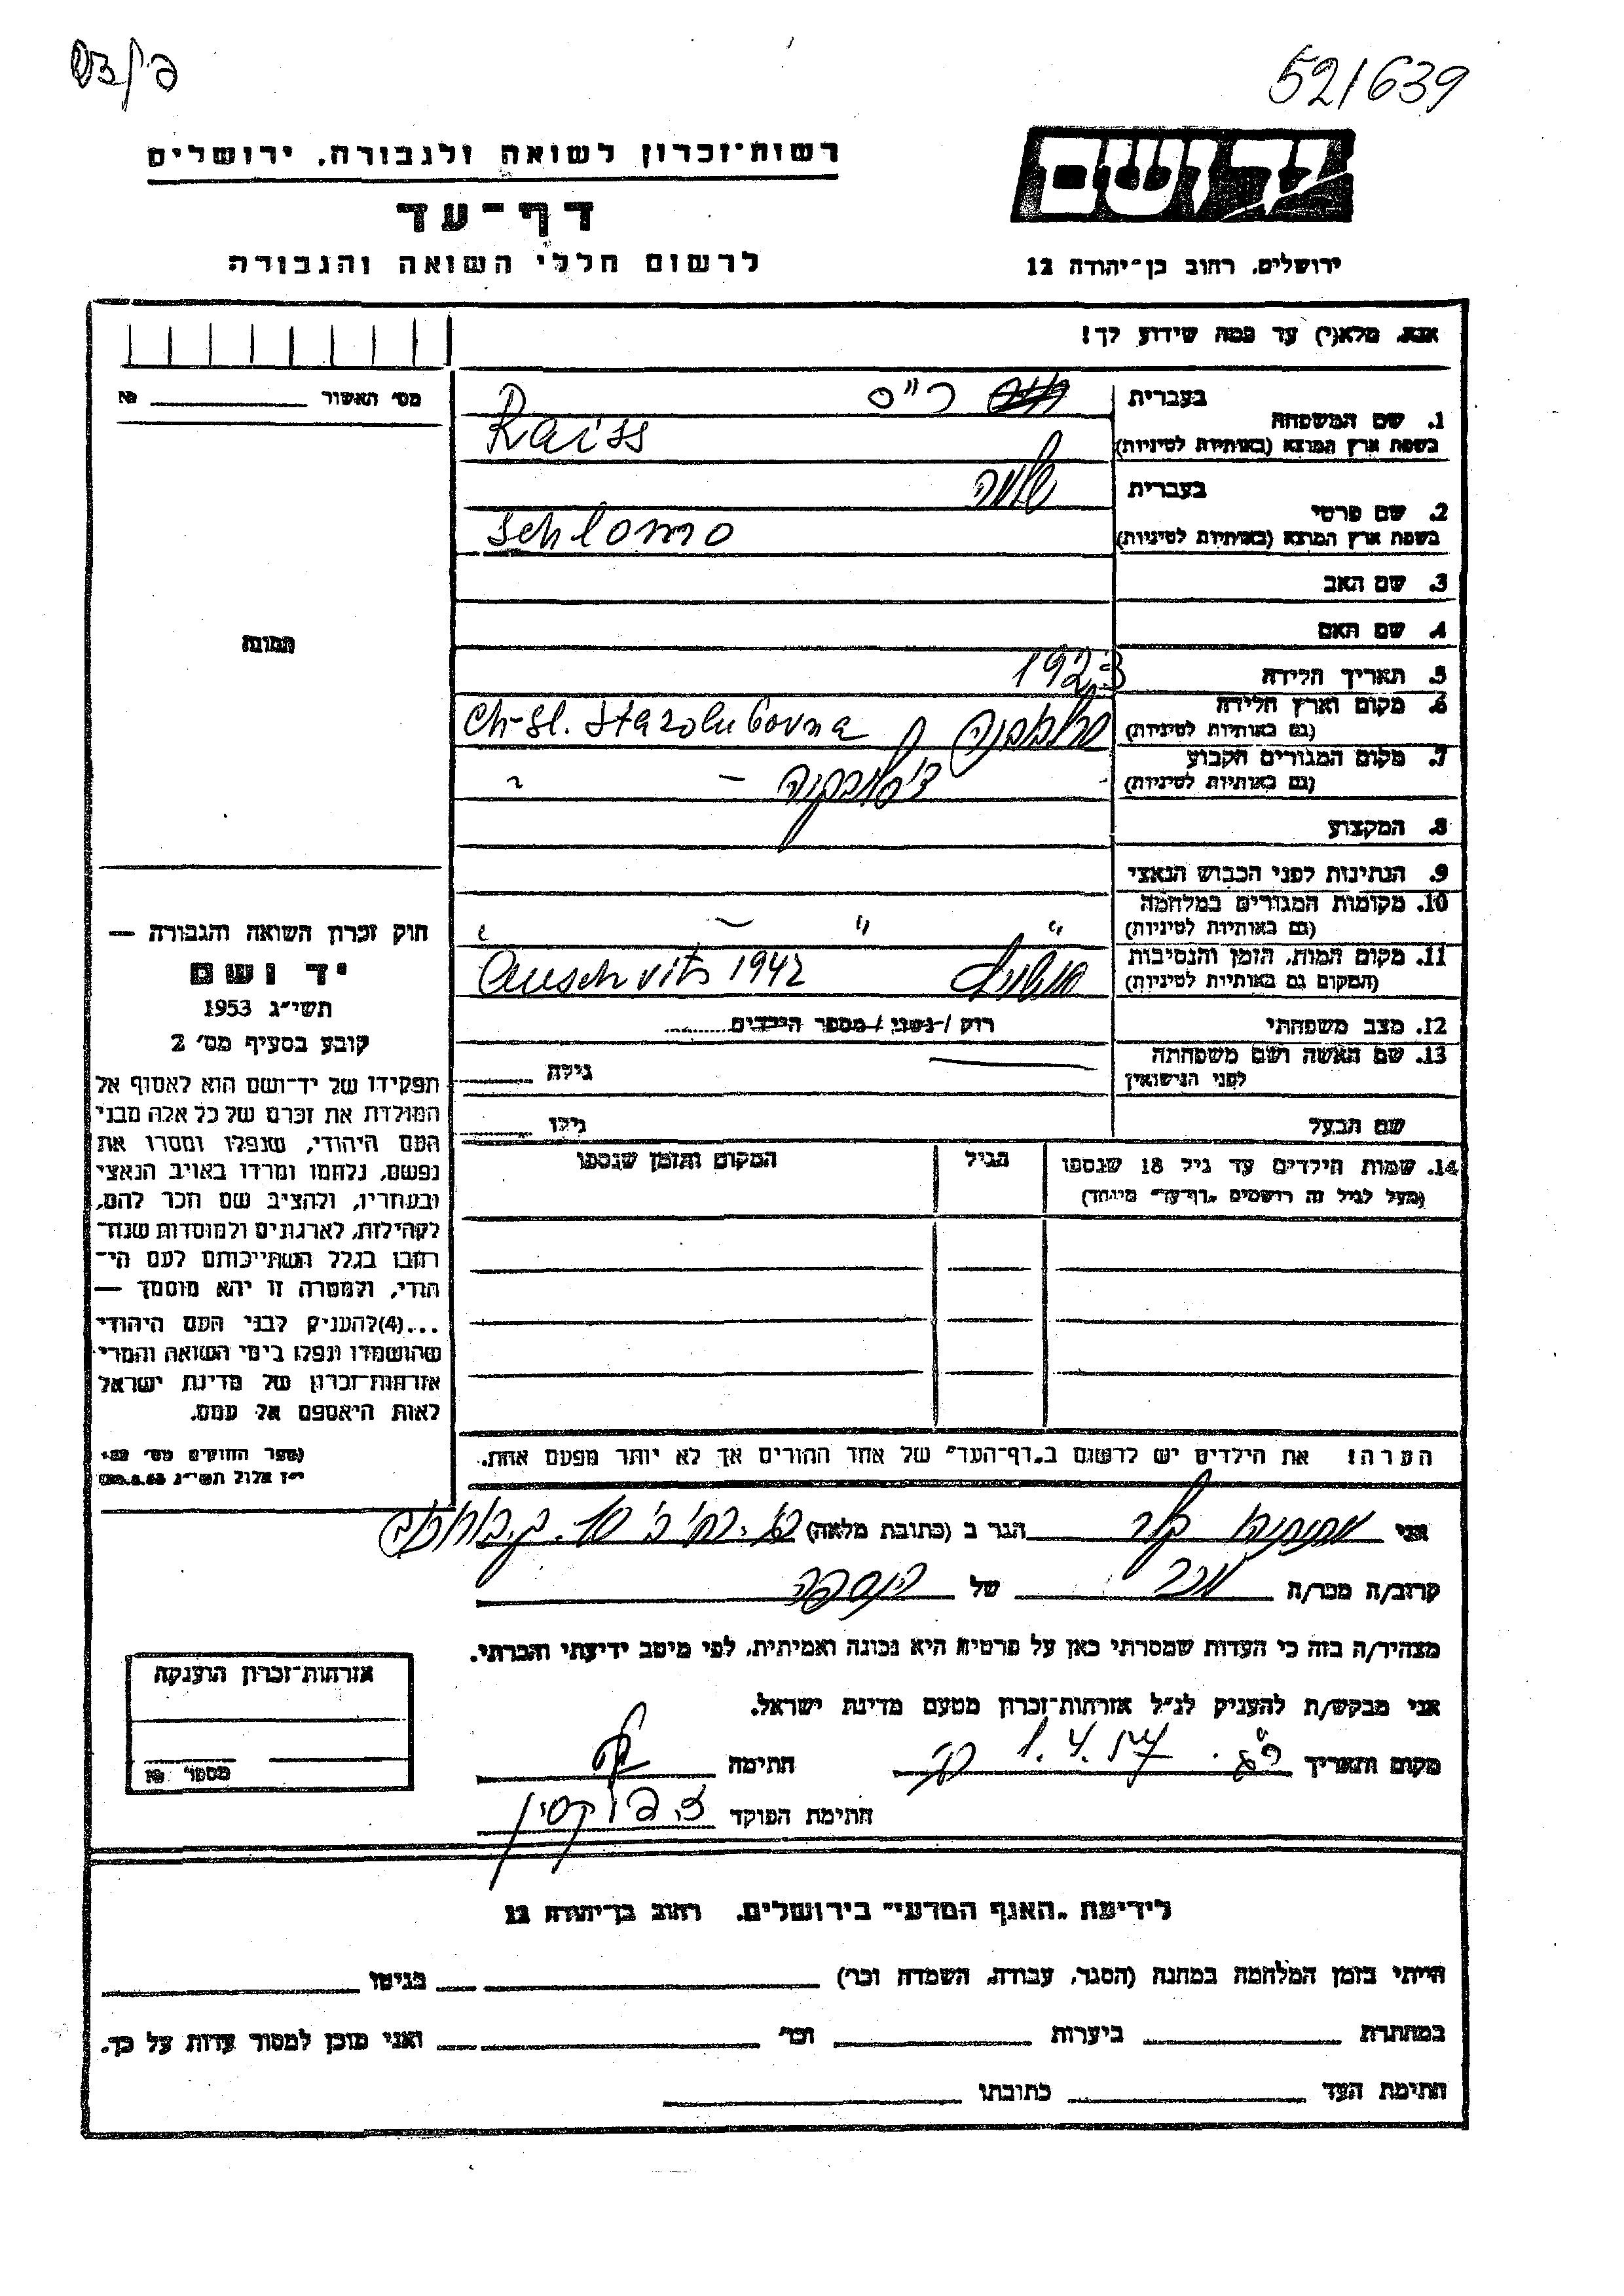 פ/צש
521639
יד ושם
רשות־זכרון לשואה ולגבורה, ירושלים
דף־עד
לרשום חללי השואה והגבורה
ירושלים, רחוב בן־יהודה 12
אנא, מלא(י) עד כמה שידוע לך!
מס' האשור № 
1. שם המשפחה
בעברית רייס
בשפת ארץ המוצא (באותיות לטיניות) Raiss
2. שם פרטי
בעברית שלמה
בשפת ארץ המוצא (באותיות לטיניות) Schlomo
3. שם האב
4. שם האם
תמונה
5. תאריך הלידה 1923
6. מקום וארץ הלידה
(גם באותיות לטיניות) Ch-Sl. Starolubovna
7. מקום המגורים הקבוע
(גם באותיות לטיניות) " —
8. המקצוע
9. הנתינות לפני הכבוש הנאצי
10. מקומות המגורים במלחמה
(גם באותיות לטיניות) " " — "
11. מקום המות, הזמן והנסיבות
(המקום גם באותיות לטיניות) אושויץ Auschvits 1942
12. מצב משפחתי רווק / נשוי / מספר הילדים
13. שם האשה ושם משפחתה
לפני הנישואין גילה
שם הבעל גילו
14. שמות הילדים עד גיל 18 שנספו הגיל המקום והזמן שנספו
(מעל לגיל זה רושמים "דף־עד" מיוחד)
חוק זכרון השואה והגבורה —
יד ושם
תשי"ג 1953
קובע בסעיף מס' 2
תפקידו של יד־ושם הוא לאסוף אל
המולדת את זכרם של כל אלה מבני
העם היהודי, שנפלו ומסרו את
נפשם, נלחמו ומרדו באויב הנאצי
ובעוזריו, ולהציב שם וזכר להם,
לקהילות, לארגונים ולמוסדות שנח־
רבו בגלל השתייכותם לעם הי־
הודי, ולמטרה זו יהא מוסמך —
...(4) להעניק לבני העם היהודי
שהושמדו ונפלו בימי השואה והמרי
אזרחות־זכרון של מדינת ישראל
לאות היאספם אל עמם.
(ספר החוקים מס' 132
י"ז אלול תשי"ג
הערה: את הילדים יש לרשום ב"דף־העד" של אחד ההורים אך לא יותר מפעם אחת.
אני הגר ב (כתובת מלאה)
קרוב/ה מכר/ה מכר של
מצהיר/ה בזה כי העדות שמסרתי כאן על פרטיה היא נכונה ואמיתית, לפי מיטב ידיעתי והכרתי.
אני מבקש/ת להעניק לנ"ל אזרחות־זכרון מטעם מדינת ישראל.
מקום ותאריך 1.4.57 חתימה
חתימת הפוקד
אזרחות־זכרון הוענקה
מספר №
לידיעת "האגף המדעי" בירושלים, רחוב בן־יהודה 12
הייתי בזמן המלחמה במחנה (הסגר, עבודה, השמדה וכו') בגיטו
במחתרת ביערות וכו' ואני מוכן למסור עדות על כך.
חתימת העד כתובתו